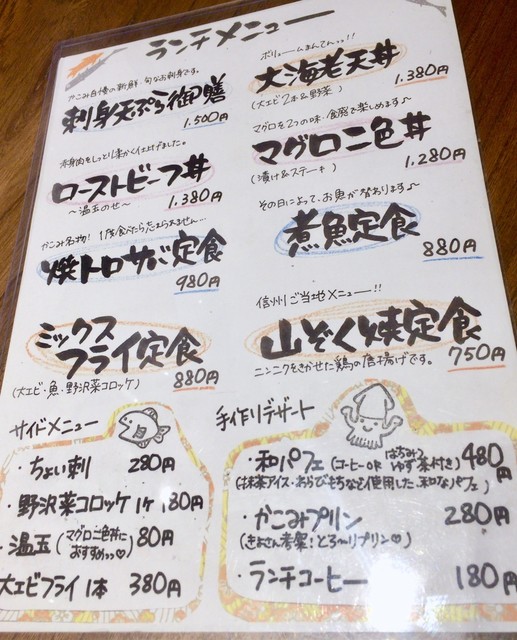 ランチメニュー
かこみ自慢の新鮮・旬なお刺身です。
刺身天ぷら御膳
1,500円
赤身肉をしっとり柔かく仕上げました。
ローストビーフ丼
〜温玉のせ〜
1,380円
かこみ名物! 1度食べたら止まらません…
焼トロサバ定食
980円
ミックス
フライ定食
(大エビ・魚・野沢菜コロッケ)
880円
ボリュームまんてんっ!!
大海老天丼
(大エビ2本&野菜)
1,380円
マグロを2つの味・食感で楽しめます〜
マグロ二色丼
(漬け&ステーキ)
1,280円
その日によって、お魚が変わります〜
煮魚定食
880円
信州ご当地メニュー!!
山ぞく焼定食
ニンニクをきかせた鶏の唐揚げです。
750円
サイドメニュー
・ちょい刺 280円
・野沢菜コロッケ 1ケ 180円
・温玉 (マグロ二色丼に おすすめっっ♡) 80円
大エビフライ 1本 380円
手作りデザート
・和パフェ (コーヒーOR はちみつゆず茶付き) 480円
(抹茶アイス・わらびもちなど使用した、和なパフェ)
・かこみプリン 280円
(きよさん考案!とろ〜りプリン♡)
・ランチコーヒー 180円